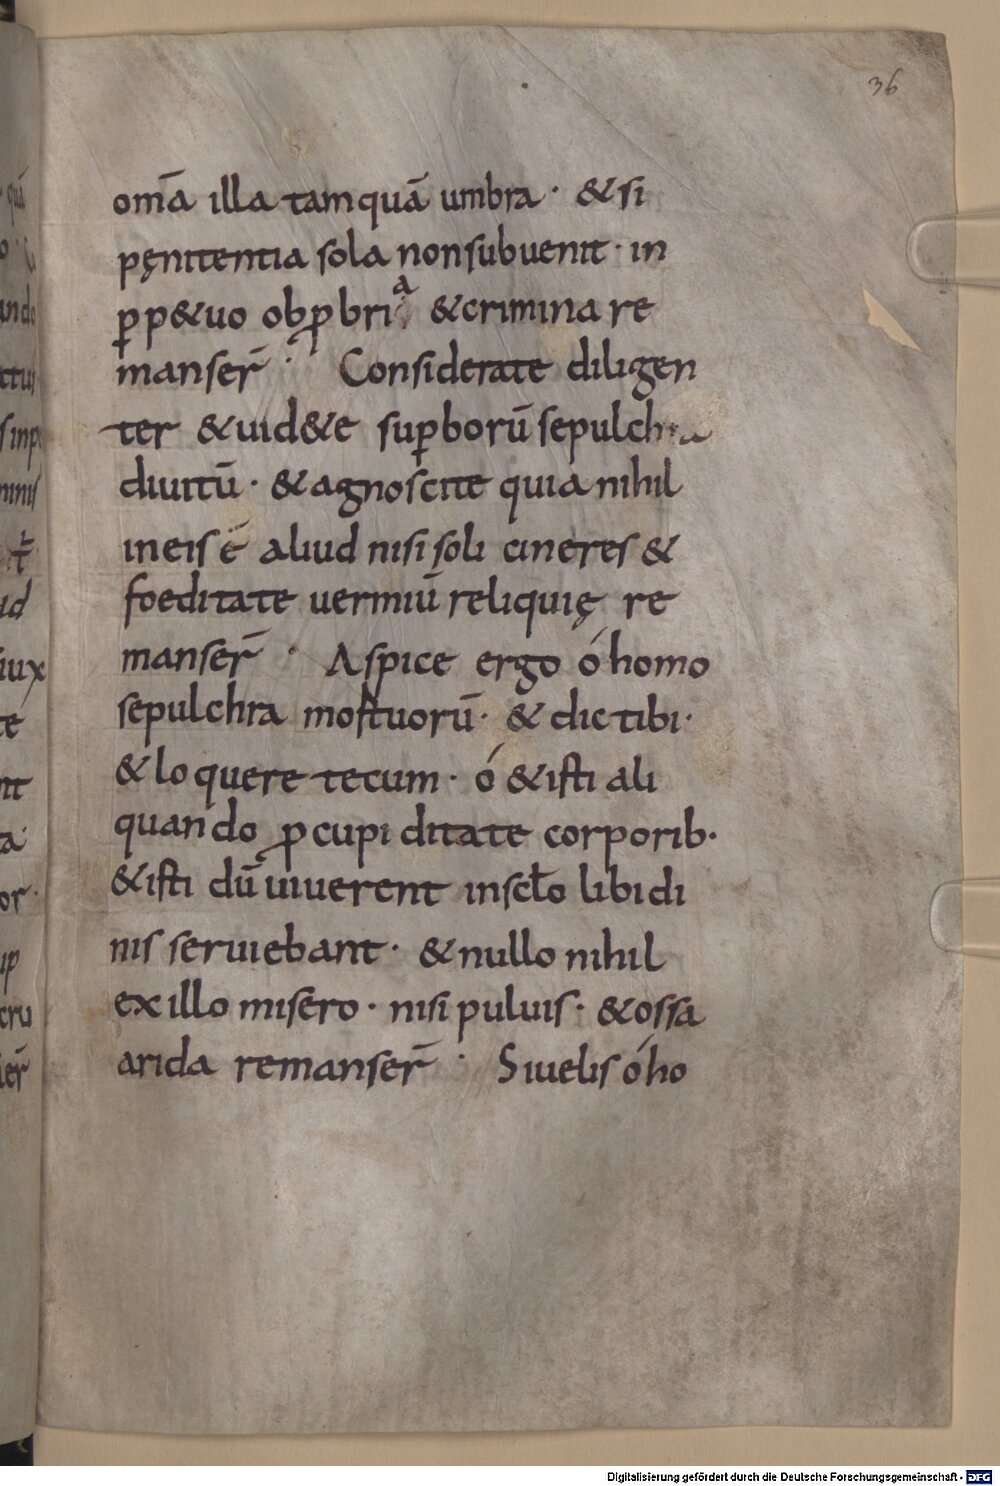 36
om̄a illa tamquā umbra · & si
pęnitentia sola non subuenit · in
ꝑp&uo obꝓbria & crimina re
manser̄ · Considerate diligen
ter & uid&e suꝑborū sepulchra
diuitū · & agnoscite quia nihil
in eis ē aliud nisi soli cineres &
foeditate uermiū reliquię re
manser̄ · Aspice ergo ó homo
sepulchra mortuorū · & dic tibi ·
& loquere tecum · ó & isti ali
quando ꝓ cupiditate corporib·
& isti dū uiuerent in scło libidi
nis seruiebant · & nullo nihil
ex illo misero · nisi puluis · & ossa
arida remanser̄ · Si uelis ó ho
Digitalisierung gefördert durch die Deutsche Forschungsgemeinschaft - DFG